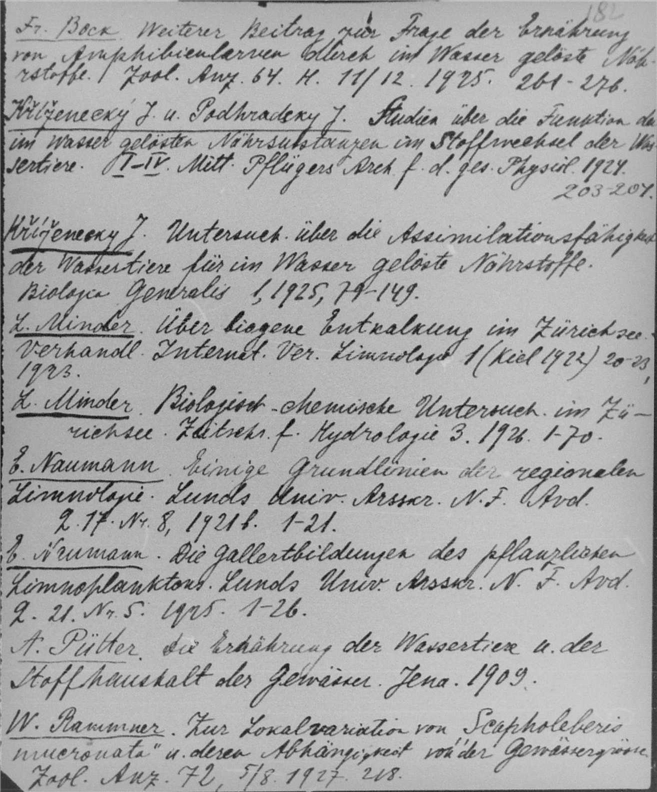 182
Fr. Bock. Weiterer Beitrag zur Frage der Ernährung
von Amphibienlarven durch im Wasser gelöste Näh-
rstoffe. / Zool. Anz. 64. H. 11/12. 1925. 261-276.
Kříženecký J. u. Podhradsky J. Studien über die Funktion der
im Wasser gelösten Nährsubstanzen im Stoffwechsel der Was-
sertiere. I-IV. Mitt. Pflügers Arch. f. d. ges. Physiol. 1924.
203-204.
Kříženecky J. Untersuch. über die Assimilationsfähigkeit
der Wassertiere für im Wasser gelöste Nährstoffe.
Biologia Generalis 1, 1925, 79-149.
L. Minder. Über biogene Entkalkung im Zürichsee.
Verhandl. Internat. Ver. Limnologie 1 (Kiel 1922) 20-23,
1923.
L. Minder. Biologisch-chemische Untersuch. im Zü-
richsee. Zeitschr. f. Hydrologie 3. 1926. 1-70.
E. Naumann. Einige Grundlinien der regionalen
Limnologie. Lunds Univ. Arsskr. N.F. Avd.
2. 17. Nr. 8, 1921 b. 1-21.
E. Naumann. Die Gallertbildungen des pflanzlichen
Limnoplanktons. Lunds Univ. Arsskr. N. F. Avd.
2. 21. Nr. 5. 1925. 1-26.
A. Pütter. Die Ernährung der Wassertiere u. der
Stoffhaushalt der Gewässer. Jena. 1909.
W. Rammner. Zur Lokalvariation von Scapholeberis
mucronata" u. deren Abhängigkeit von der Gewässergrösse.
Zool. Anz. 72, 5/8. 1927. 218.